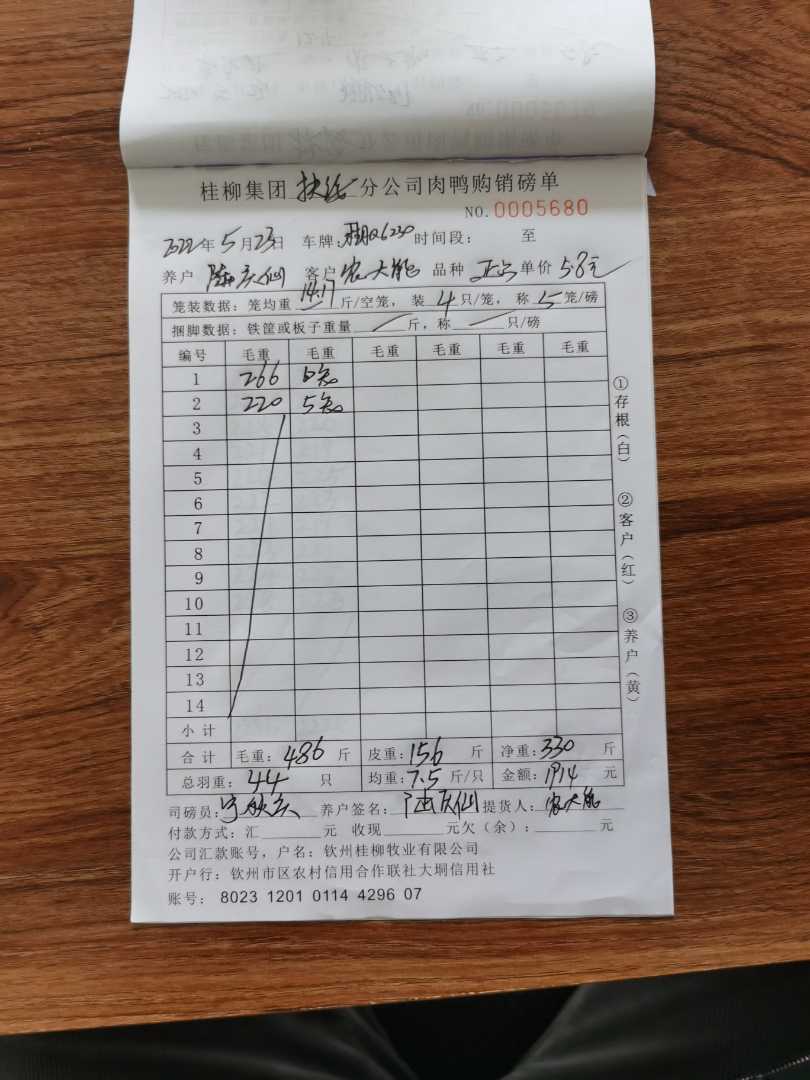 桂柳集团 分公司肉鸭购销磅单
NO.0005680
2022年5月23日 车牌: 时间段: 至
养户 陆庆仙 客户 农大能 品种 单价 5.8元
笼装数据:笼均重 14.17 斤/空笼, 装 4 只/笼, 称 5 笼/磅
捆脚数据:铁筐或板子重量 / 斤,称 / 只/磅
编号 毛重 毛重 毛重 毛重 毛重 毛重
1 266 6笼
2 220 5笼
3
4
5
6
7
8
9
10
11
12
13
14
小计
合计 毛重:486 斤 皮重:156 斤 净重:330 斤
总羽重:44 只 均重:7.5 斤/只 金额:1914 元
司磅员: 养户签名:陆庆仙 提货人:农大能
付款方式:汇 元 收现 元欠(余): 元
公司汇款账号,户名:钦州桂柳牧业有限公司
开户行:钦州市区农村信用合作联社大垌信用社
账号: 8023 1201 0114 4296 07
①存根(白)
②客户(红)
③养户(黄)